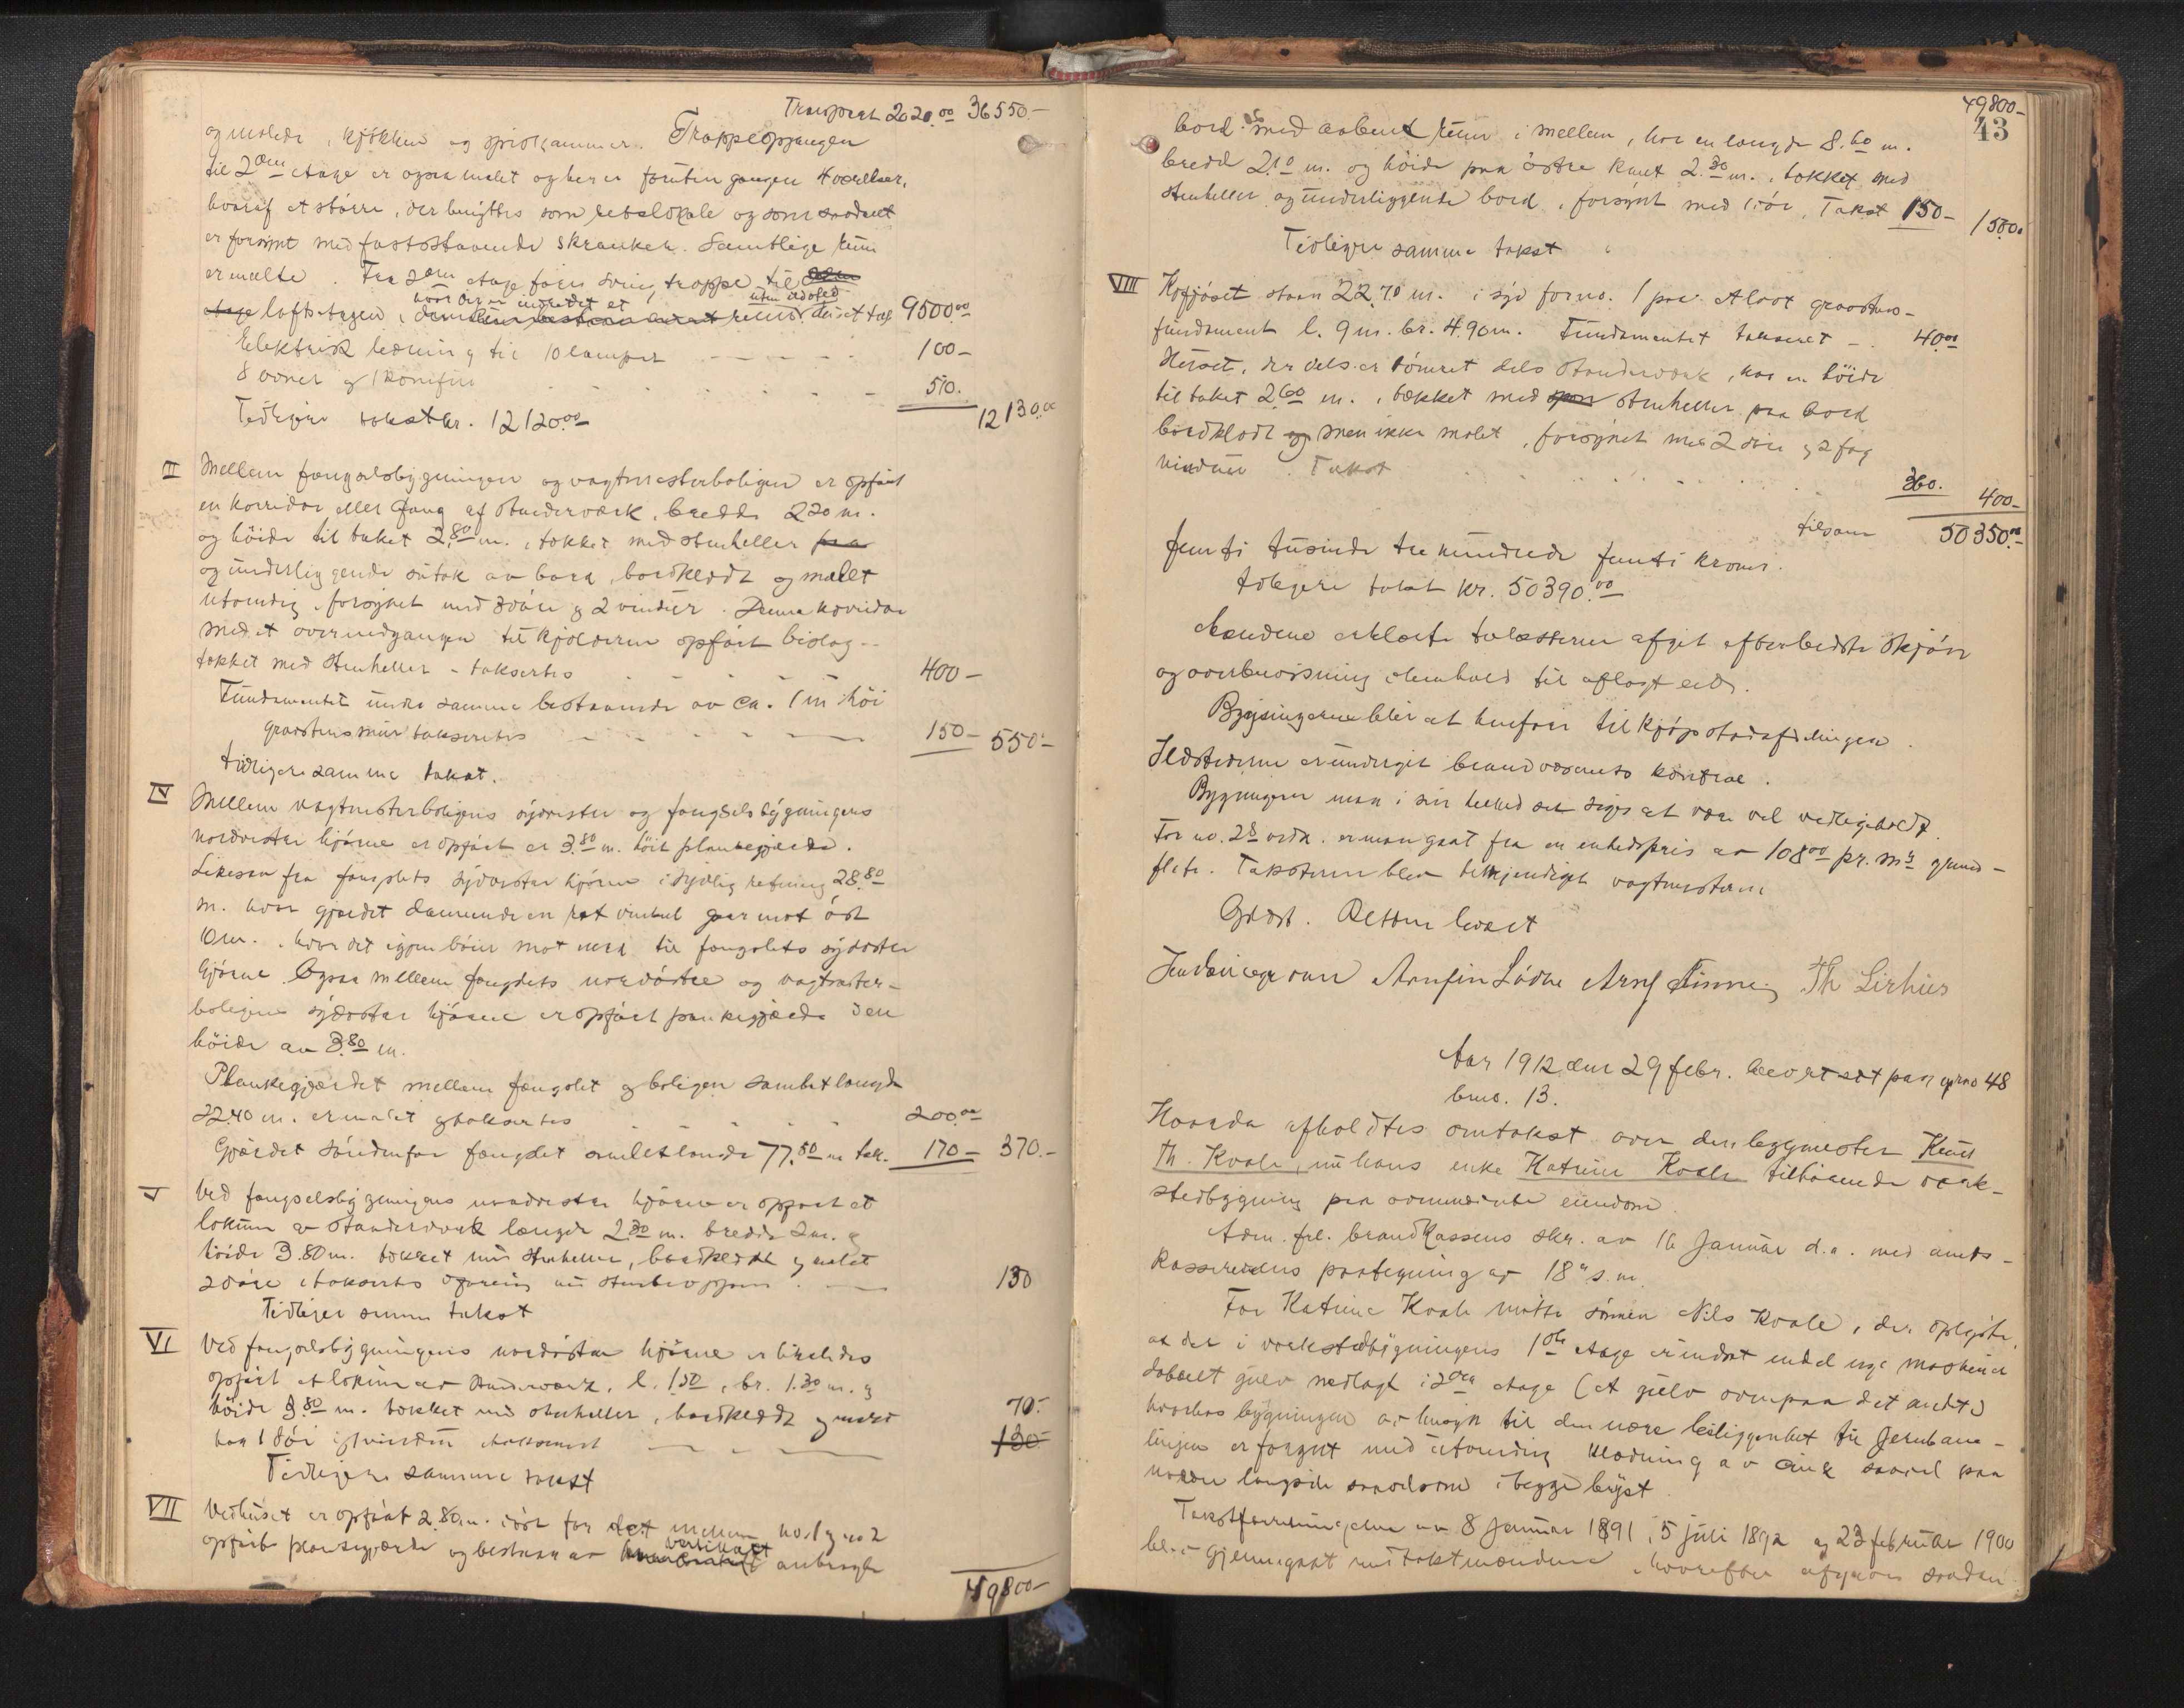 Transport 2020.00 36550.-
og malede, kjøkken og spiskammer. Trappeopgangen
til 2den etage er ogsaa malet og her er foruten gangen 4 værelser,
hvoraf et større, der benyttes som retslokale og som saadant
er forsynt med faststaaende skranker. Samtlige rum
er malte. Fra 2den etage fører sving trappe til
etage loftsetagen, hvor der er indredet et rum uten ildsted
9500.00
Elektrisk ledning til 10 lamper 100-
8 ovner og 1 komfur 510.
Tidligere takst kr. 12120.00 12130.00
II Mellem fængselsbygningen og vagtmesterboligen er opført
en korridor eller gang af stenderværk, bredde 2 20 m.
og høide til taket 2.80 m., tækket med stenheller paa
og underliggende sutak av bord, bordklædt og malet
utvendig, forsynet med 3 døre og 2 vinduer. Denne korridor
med et over nedgangen til kjælderen opført bislag
tækket med stenheller - taksertes 400-
Fundamentet under samme bestaaende av ca. 1 m høi
graastensmur taksertes 150- 550.-
tidligere samme takst.
IV Mellem vagtmesterboligens sydvestre og fængselsbygningens
nordvestre hjørne er opført et 3.80 m. høit plankegjærde.
Likesaa fra fængslets sydvestre hjørne i sydlig retning 28.80
m. hvor gjærdet dannende en ret vinkel gaar mot øst
10 m., hvor det igjen bøier mot nord til fængslets sydøstre
hjørne. Ogsaa mellem fængslets nordøstre og vagtmester-
boligens sydøstre hjørne er opført plankegjærde i en
høide av 3.80 m.
Plankegjærdet mellem fængslet og boligen samlet længde
22.40 m. er malet og taksertes 200.00
Gjærdet søndenfor fængslet samlet længde 77.50 m tak. 170- 370.-
V Ved fængselsbygningens nordvestre hjørne er opført et
lokum av stenderværk længde 2.30 m. bredde 2 m. og
høide 3.80 m. tækket med stenheller, bordklædt og malet
2 døre, taksertes 130
Tidligere samme takst
VI Ved fængselsbygningens nordøstre hjørne er likeledes
opført et lokum av stenderværk, l. 1.50, br. 1.30 m. og
høide 3.80 m. tækket med stenheller, bordklædt og malet 70.-
har 1 dør og 1 vindu 130-
Tidligere samme takst
VII Vedhuset er opført 2.80 m. øst for det mellem no. 1 og no 2
opførte plankegjærde og bestaar av vertikalt anbragte
49800-
49800-
43
bord med aabent rum i mellem, har en længde 8.60 m.
bredde 2.10 m. og høide paa østre kant 2.30 m., tækket med
stenheller og underliggende bord, forsynt med 1 dør, Takst 150- 150.
Tidligere samme takst
VIII Kofjøset staar 22.70 m. i syd for no. 1 paa et løst graastens-
fundament l. 9 m. br. 4.90 m. Fundamentet takseret - 40.00
Huset, der dels er tømret dels stenderværk, har en høide
til taket 2.60 m., tækket med stenheller paa bord
bordklædt og men ikke malet, forsynet med 2 døre og 2 fag
vinduer. Takst 360. 400-
tilsam 50350.00
femti tusinde tre hundrede femti kroner.
tidligere takst kr. 50390.00
Mændene erklærte taksterne afgit efter bedste skjøn
og overbevisning i henhold til aflagt ed.
Bygningerne blir at henføre til kjøpstadafdelingen.
Ildstederne er undergit brandvæsenets kontrol.
Bygningene maa i sin helhed siges at være vel vedligeholdt.
For no. 2s vedk. er man gaat fra en enhedspris av 108.00 pr. m2 grund-
flate. Taksterne blev tilkjendegit vagtmesteren
Oplæst. Retten hævet
Arnfin Lødve Th Lirhus
Aar 1912 den 29 febr. blev ret sat paa grno 48
brno. 13.
Hvorda afholdtes omtakst over den bygmester Knut
Th. Kvale, nu hans enke Katrine Kvale tilhørende verk-
stedbygning paa ovennævnte eiendom.
Adm. frl. brandkassens skr. av 16 januar d.a. med amts-
kassererens paategning av 18" s.m.
For Katrine Kvale møtte sønnen Nils Kvale, der oplyste,
at der i verkstedbygningens 1ste etage er indsat endel nye maskiner
dobbelt gulv nedlagt i 2den etage (et gulv ovenpaa det andet)
hvorhos bygningen av hensyn til den nære beliggenhet til jernbane-
linjen er forsynt med utvendig klædning av sink saavel paa
nordre langside saavelsom i begge bryst.
Takstforretningerne av 8 januar 1891, 5 juli 1892 og 23 februar 1900
blev gjennemgaat med takstmændene, hvorefter afgaves saadan